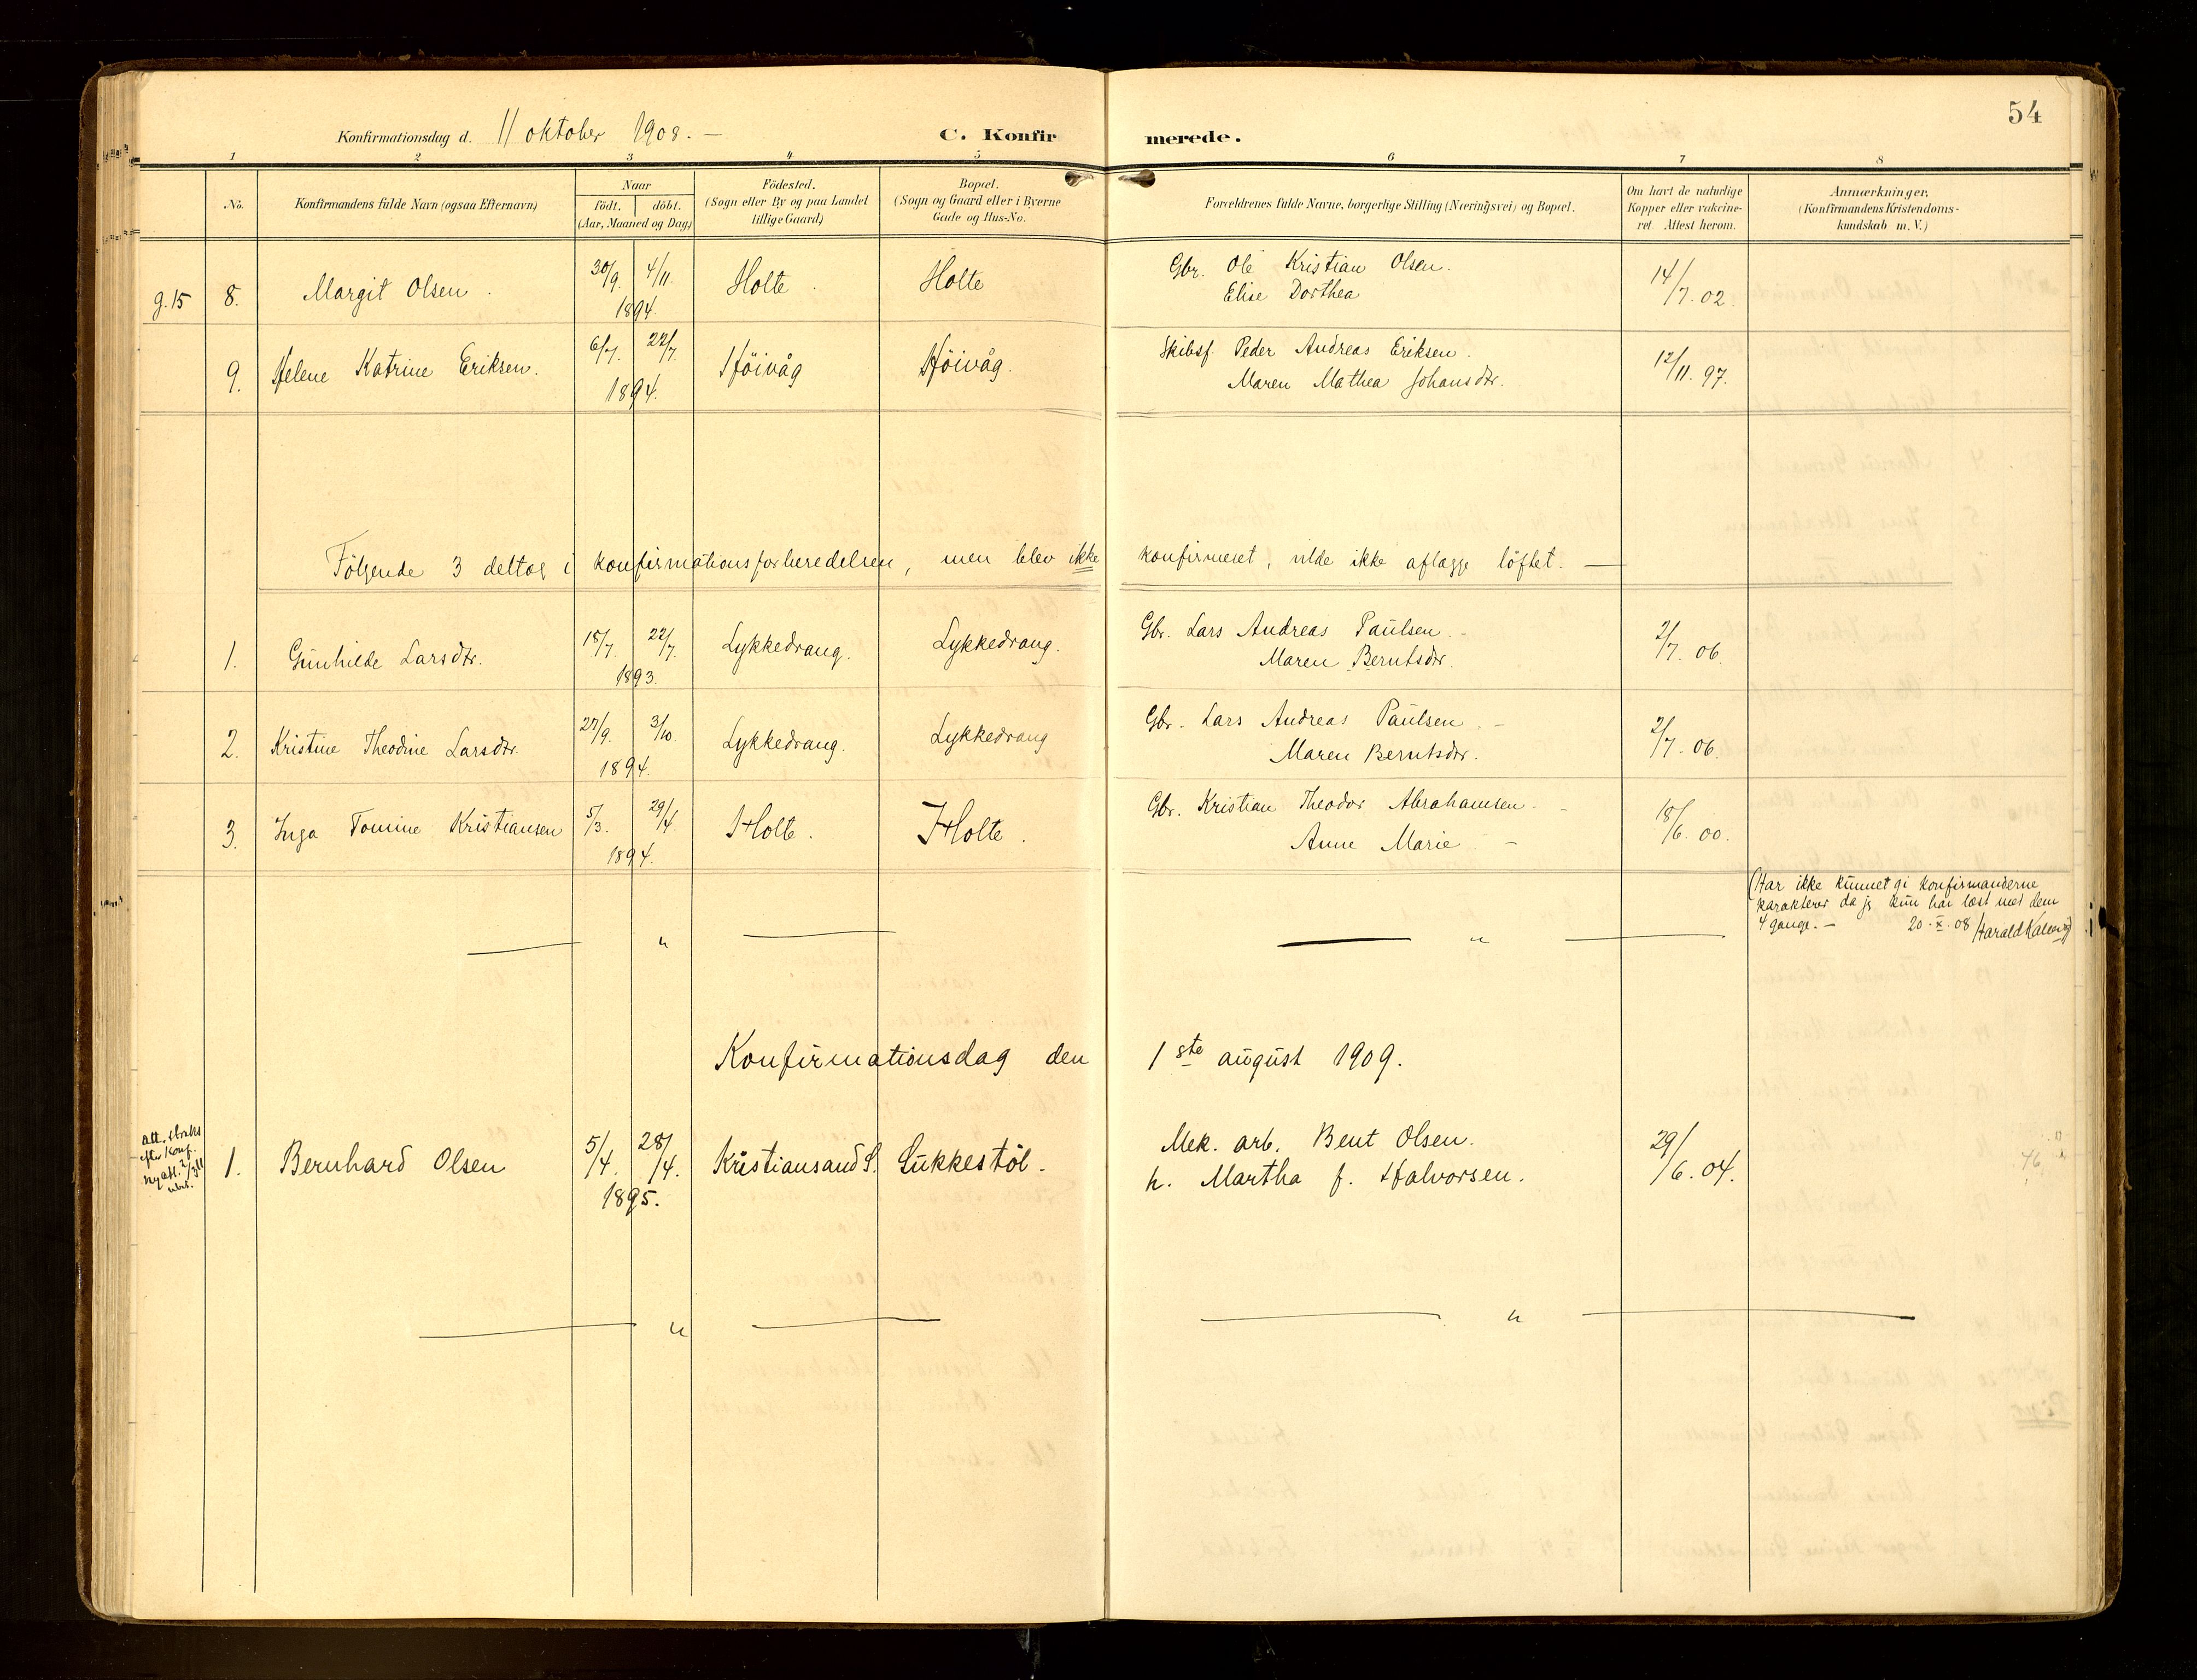 54
Konfirmationsdag d. 11 oktober 1908. — C. Konfirmerede.
1 2 3 4 5 6 7 8
No.
Konfirmandens fulde Navn (ogsaa Efternavn)
Naar
födt. döbt.
(Aar, Maaned og Dag)
Födested.
(Sogn eller By og paa Landet
tillige Gaard)
Bopæl.
(Sogn og Gaard eller i Byerne
Gade og Hus-No.
Forældrenes fulde Navne, borgerlige Stilling (Næringsvei) og Bopæl.
Om havt de naturlige
Kopper eller vakcine-
ret. Attest herom.
Anmærkninger.
(Konfirmandens Kristendoms-
kundskab m. V.)
g.15 8. Margit Olsen. 30/9. 4/11. 1894. Holte. Holte
Gbr. Ole Kristian Olsen.
Elise Dorthea
14/7. 02.
9. Helene Katrine Eriksen. 6/7. 22/7. 1894. Höivåg Höivåg.
Skibsf. Peder Andreas Eriksen.
Maren Mathea Johansdtr.
12/11. 97.
Fölgende 3 deltog i konfirmationsforberedelsen, men blev ikke konfirmeret, vilde ikke aflægge löftet. —
1. Gunhilde Larsdtr. 15/7. 22/7. 1893. Lykkedrang. Lykkedrang.
Gbr. Lars Andreas Paulsen. -
Maren Berntsdtr.
2/7. 06.
2. Kristine Theodine Larsdtr. 27/9. 3/10. 1894. Lykkedrang. Lykkedrang
Gbr. Lars Andreas Paulsen. -
Maren Berntsdtr.
2/7. 06.
3. Inga Tomine Kristiansen 5/3. 29/4. 1894. Holte. Holte.
Gbr. Kristian Theodor Abrahamsen. -
Anne Marie. -
18/6. 00.
(Har ikke kunnet gi konfirmanderne
karakterer da jeg kun har læst med dem
4 gange. — 20.X.08 Harald
— " — — " —
Konfirmationsdag den 1ste august 1909.
Att. straks
efter konf.
Ny att.
1. Bernhard Olsen 5/4. 28/4. 1895. Kristiansand S. Lukkestöl.
Mek. arb. Bent Olsen.
h. Martha f. Halvorsen.
29/6. 04.
— " — — " —